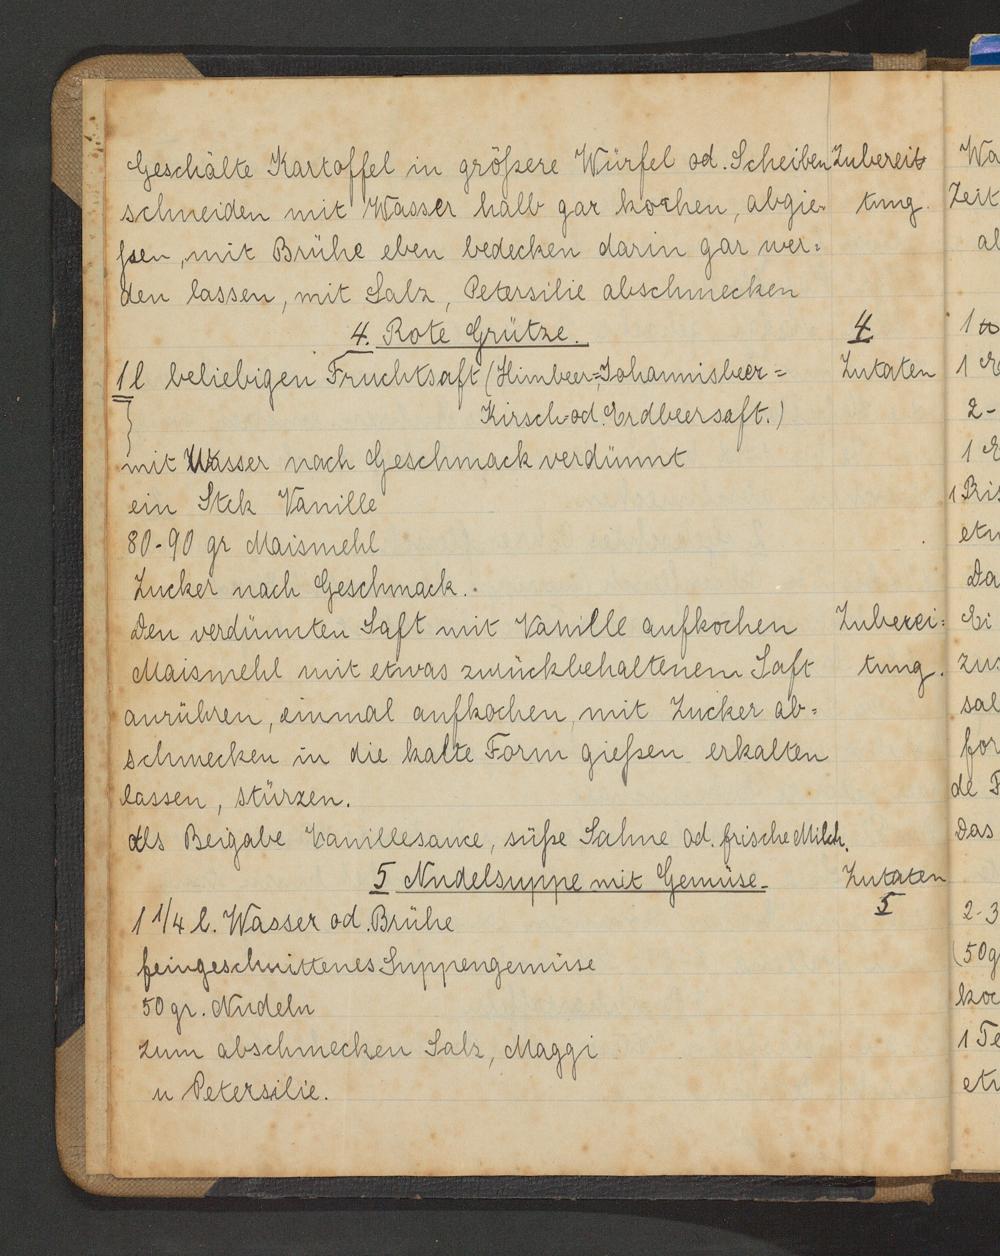 Geschälte Kartoffel in größere Würfel od. Scheiben Zubereit
schneiden mit Wasser halb gar kochen, abgie- tung.
ßen, mit Brühe eben bedecken darin gar wer=
den lassen, mit Salz, Petersilie abschmecken
4. Rote Grütze. 4
1 l beliebigen Fruchtsaft (Himbeer=Johannisbeer= Zutaten
Kirsch=od. Erdbeersaft.)
mit Wasser nach Geschmack verdünnt
ein Stck Vanille
80-90 gr Maismehl
Zucker nach Geschmack.
Den verdünnten Saft mit Vanille aufkochen Zuberei=
Maismehl mit etwas zurückbehaltenem Saft tung.
anrühren, einmal aufkochen, mit Zucker ab=
schmecken in die kalte Form gießen erkalten
lassen, stürzen.
Als Beigabe Vanillesauce, süße Sahne od. frische Milch.
5 Nudelsuppe mit Gemüse. Zutaten
5
1 1/4 l. Wasser od. Brühe
feingeschnittenes Suppengemüse
50 gr. Nudeln
zum abschmecken Salz, Maggi
u Petersilie.
Wa
Zeit
al
1
1 E
2-
1 E
1 Pris
etw
Da
Ei
zus
sal
for
de F
Das
2-3
(50g
koc
1 Te
etw